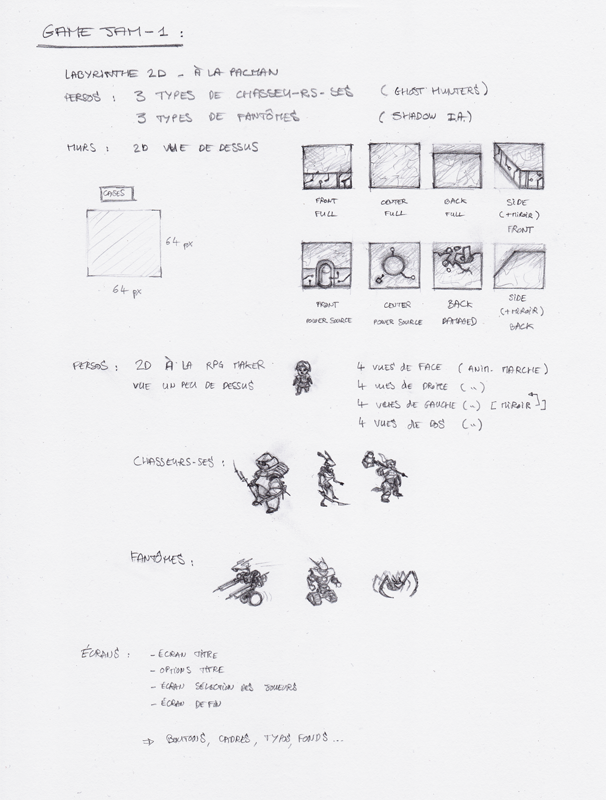 GAME JAM-1 :
LABYRINTHE 2D - À LA PACMAN
PERSOS : 3 TYPES DE CHASSEU-RS-SES (GHOST HUNTERS)
3 TYPES DE FANTÔMES (SHADOW I.A.)
MURS : 2D VUE DE DESSUS
CASES
64 px
64 px
FRONT FULL
CENTER FULL
BACK FULL
SIDE (+MIROIR) FRONT
FRONT POWER SOURCE
CENTER POWER SOURCE
BACK DAMAGED
SIDE (+MIROIR) BACK
PERSOS : 2D À LA RPG MAKER
VUE UN PEU DE DESSUS
4 VUES DE FACE (ANIM. MARCHE)
4 VUES DE DROITE (")
4 VUES DE GAUCHE (") [MIROIR]
4 VUES DE DOS (")
CHASSEURS-SES :
FANTÔMES :
ÉCRANS : - ÉCRAN TITRE
- OPTIONS TITRE
- ÉCRAN SÉLECTION DES JOUEURS
- ÉCRAN DE FIN
⇒ BOUTONS, CADRES, TYPO, FONDS ...